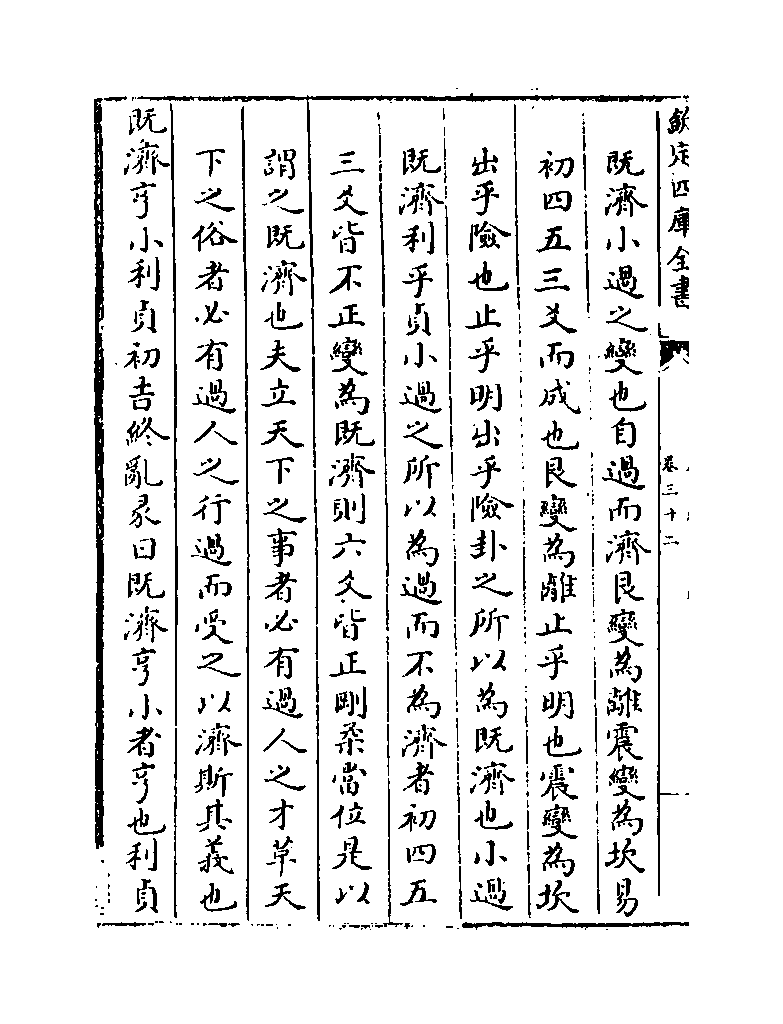 欽定四庫全書
卷三十二
既濟小過之變也自過而濟艮變為離震變為坎易
初四五三爻而成也艮變為離止乎明也震變為坎
出乎險也止乎明出乎險卦之所以為既濟也小過
既濟利乎貞小過之所以為過而不為濟者初四五
三爻皆不正變為既濟則六爻皆正剛柔當位是以
謂之既濟也夫立天下之事者必有過人之才革天
下之俗者必有過人之行過而受之以濟斯其義也
既濟亨小利貞初吉終亂彖曰既濟亨小者亨也利貞